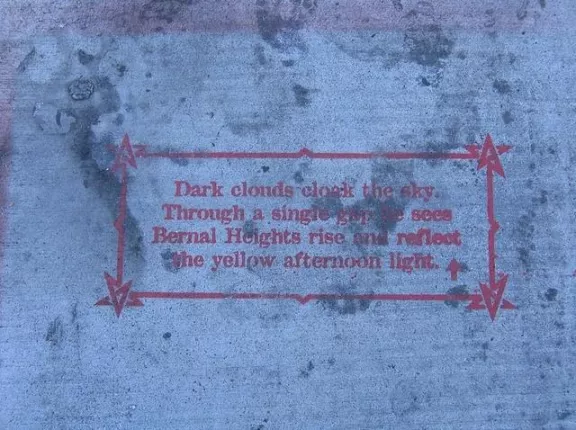 Dark clouds cloak the sky.
Through a single gap he sees
Bernal Heights rise and reflect
the yellow afternoon light.